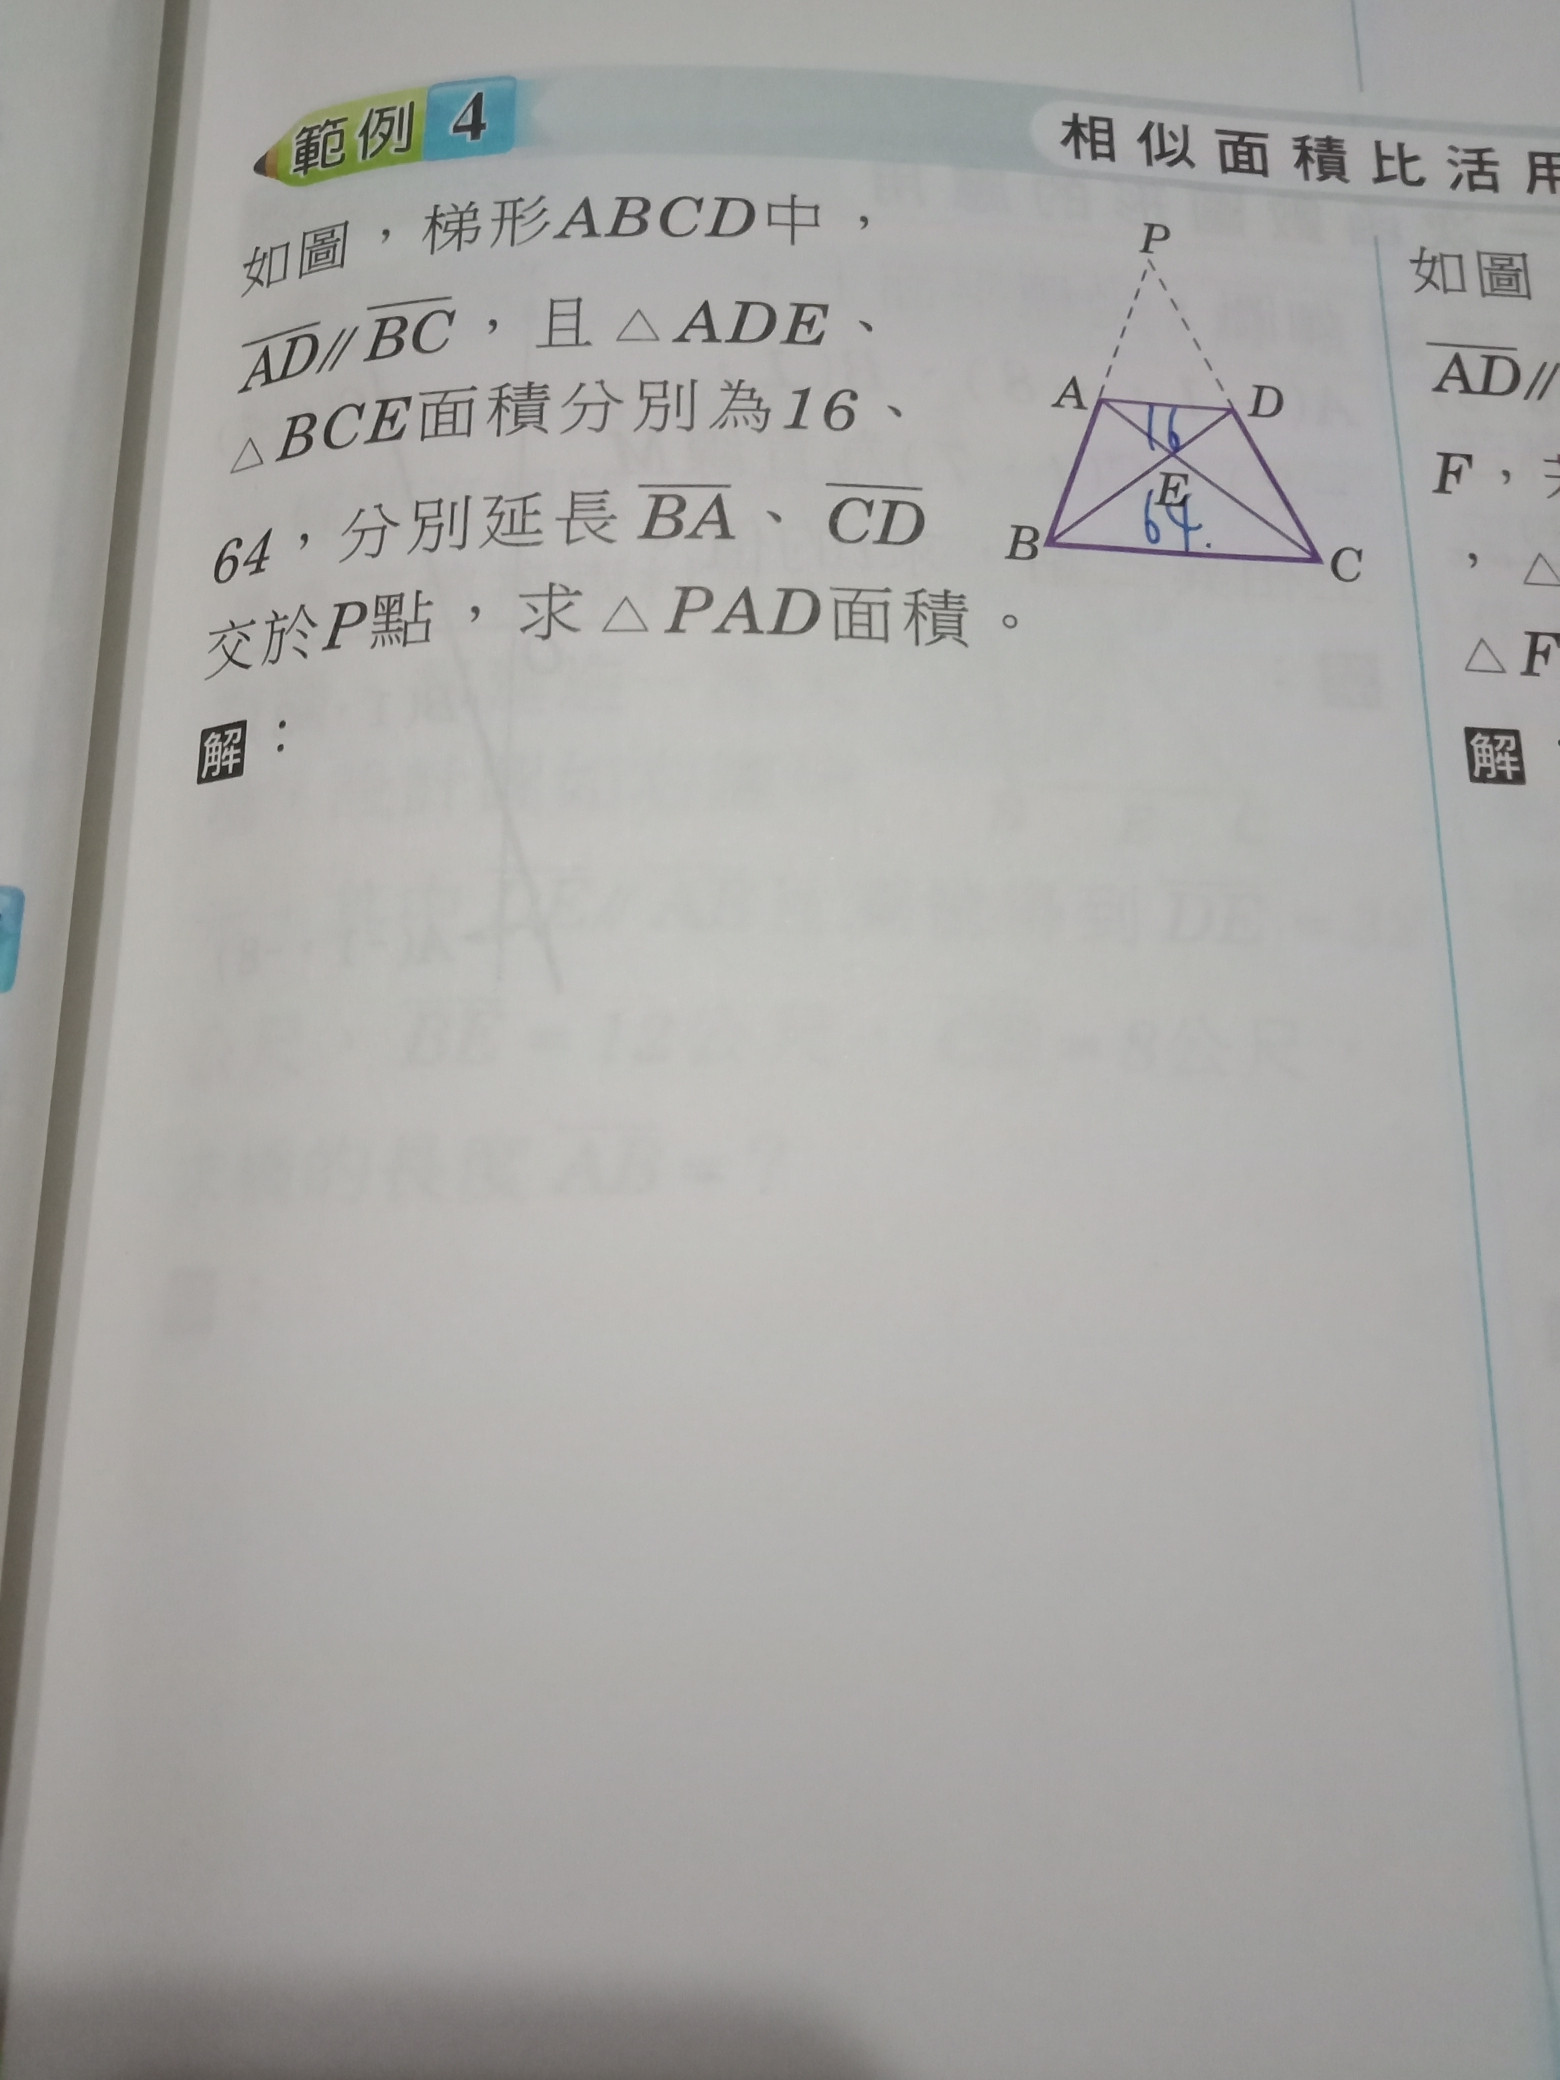 範例 4
相似面積比活用
如圖，梯形ABCD中，
AD//BC，且△ADE、
△BCE面積分別為16、
64，分別延長BA、CD
交於P點，求△PAD面積。
解：
P
A
D
16
E
64.
B
C
如圖
AD//
F，
，△
△F
解